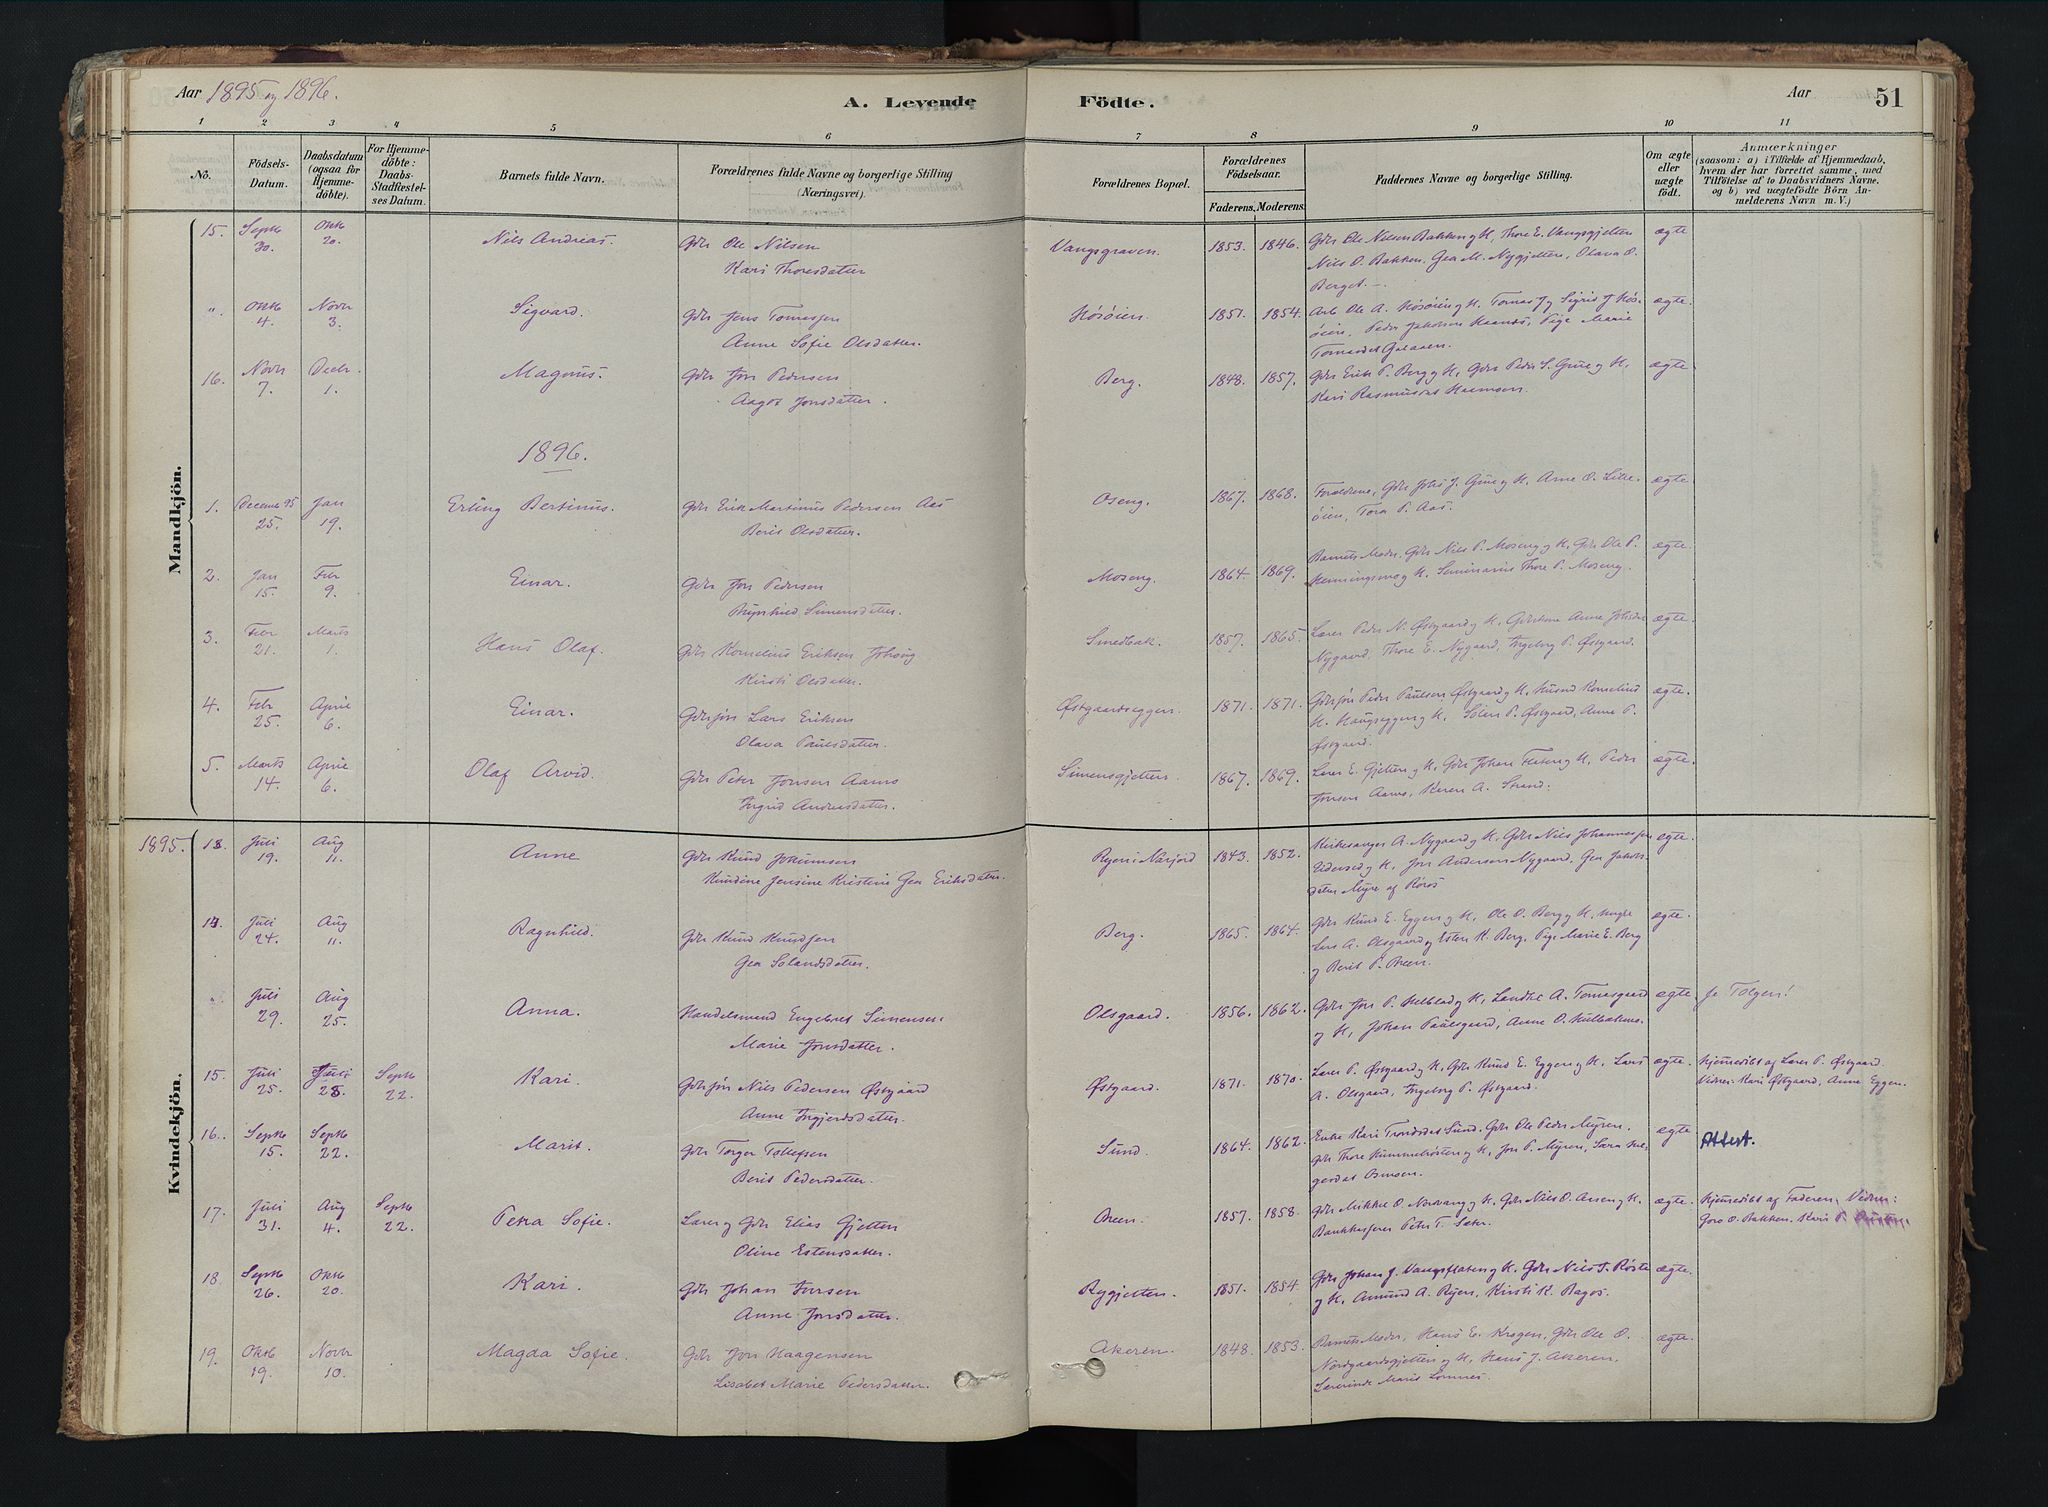 Aar 1895 og 1896.
A. Levende
Födte.
Aar
51
1 2 3 4 5 6 7 8 9 10 11
No.
Födsels-
Datum.
Daabsdatum
(ogsaa for
Hjemme-
döbte).
For Hjemme-
döbte:
Daabs-
Stadfæstel-
ses Datum.
Barnets fulde Navn.
Forældrenes fulde Navne og borgerlige Stilling
(Næringsvei).
Forældrenes Bopæl.
Forældrenes
Födselsaar.
Faderens. Moderens.
Faddernes Navne og borgerlige Stilling.
Om ægte
eller
uægte
födt.
Anmærkninger
(saasom: a) i Tilfælde af Hjemmedaab,
hvem der har forrettet samme, med
Tilföielse af to Daabsvidners Navne,
og b) ved uægtefödte Börn An-
melderens Navn m. V.)
Mandkjön.
15. Septb 30. Oktb 20. Nils Andreas. Gdr Ole Nilsen
Kari Thoresdatter
Vangsgraven. 1853. 1846. Gdr Ole Nilsen Bakken og H, Thore E. Vangsgjelten
Nils O. Bakken. Gea M. Nygjelten, Olava O.
Berget.
ægte
" Oktb 4. Novbr 3. Sigvard. Gdr Jens Tomassen
Anne Sofie Olsdatter.
Hösöien. 1851. 1854. Arb Ole A. Hösöien og H. Tomas J og Sigrid J Hös-
öien, Peder Jakobsen Pige Marie
Tomasdat Galaaen.
ægte.
16. Novbr 7. Decbr. 1. Magnus. Gdr Jon Pedersen
Aagot Jonsdatter.
Berg. 1848. 1857. Gdr Erik P. Berg og H, Gdr Peder S. Grue og H,
Kari Rasmusdat
ægte
1896.
1. Decemb 95 25. Jan 19. Erling Bertinus. Gdr Erik Martinus Pedersen Aas
Berit Olsdatter.
Oseng. 1867. 1868. Forældrene, Gdr Johs J. Grue og H, Arne O. Lille-
öien, Tora P. Aas.
ægte.
2. Jan 15. Febr 9. Einar. Gdr Jon Pedersen
Brynhild Simensdatter.
Moseng. 1864. 1869. Barnets Moder, Gdr Nils P. Moseng og H, Gdr Ole P.
Henningsmo og H, Seminarist Thore P. Moseng.
ægte.
3. Febr 21. Marts 1. Hans Olaf. Gdr Kornelius Eriksen
Kirsti Olsdatter.
Smedbak. 1857. 1865. Lærer Peder N. Østgaard og H, Gdrskone Anne Johsdr
Nygaard, Thore E. Nygaard, Ingeborg P. Østgaard.
ægte.
4. Febr 25. April 6. Einar. Gdrsøn Lars Eriksen
Olava Paulsdatter.
Østgaardseggen. 1871. 1871. Gdrsøn Peder Paulsen Østgaard og H, Husmd Kornelius
H. Haugseggen og H, Sören P. Østgaard, Anne P.
Østgaard.
ægte.
5. Marts 14. April 6. Olaf Arvid. Gdr Peter Jonsen Aams
Ingrid Andreasdatter.
Simensgjelten. 1867. 1869. Lærer E. Gjelten og H, Gdr Johan Flaten og H, Peder
Jonsen Aams, Karen A. Strand.
ægte.
Kvindekjön.
1895. 13. Juli 19. Aug 11. Anne Gdr Knud Jokumsen
Knudine Jensine Kristine Gea Eriksdatter.
Ryen i Narjord 1843. 1852. Kirkesanger A. Nygaard og H, Gdr Nils Johannessen
og H, Jon Andersen Nygaard, Gea Jakobs-
datter Myre af Röros
ægte.
14. Juli 24. Aug 11. Ragnhild. Gdr Knud Knudsen
Gea Solandsdatter.
Berg. 1865. 1864. Gdr Knud E. Eggen og H, Ole O. Berg og H,
Lars A. Olsgaard og Esten K. Berg. Pige Marie E. Berg
og Berit P. Bræen.
ægte.
" Juli 29. Aug 25. Anna. Handelsmand Engebret Simensen.
Marie Jonsdatter.
Olsgaard. 1856. 1862. Gdr Jon P. og H, Landhl A. Tomasgaard
og H, Johan Paulsgaard, Anne O.
ægte. se Tolgen!
15. Juli 25. Juli 28. Septb 22. Kari. Gdrsøn Nils Pedersen Østgaard
Anne Ingjerdsdatter.
Østgaard. 1871. 1870. Lærer P. Østgaard og H, Gdr Knud E. Eggen og H, Lars
A. Olsgaard, Ingeborg P. Østgaard.
ægte. Hjemmedöbt af Lærer P. Østgaard.
Vidner: Kari Østgaard, Anne Eggen.
16. Septb 15. Septb 22. Marit. Gdr Torger Tollefsen
Berit Pedersdatter.
Sund. 1864. 1862. Enke Kari Trondsdat Sund, Gdr Ole Peder Myren,
Gdr Thore og H, Jon P. Myren, Sara
ægte Attest.
17. Juli 31. Aug 4. Septb 22. Petra Sofie. Lærer og Gdr Elias Gjelten
Oline Estensdatter.
Bræen. 1857. 1858. Gdr Mikkel O. Narvang og H, Gdr Nils O. Aasen og H,
Bankkasserer Peter T. Sæter.
ægte. Hjemmedöbt af Faderen, Vidner:
Goro O. Bakken. Kari P.
18. Septb 26. Oktb 20. Kari. Gdr Johan Jonsen
Anne Jonsdatter.
Rygjelten. 1851. 1854. Gdr Johan J. Vangsflaten og H, Gdr Nils T. Röste
og H, Amund A. Ryen, Kirsti K. Bagås.
ægte.
19. Oktb 19. Novbr 10. Magda Sofie. Gdr Jon Haagensen
Lisabet Marie Pedersdatter.
Akeren. 1848. 1853. Barnets Moder, Hans E. Krogen, Gdr Ole O.
Nordgaardsgjelten og H, Hans J. Akeren,
Lærerinde Marit Lomnes
ægte.